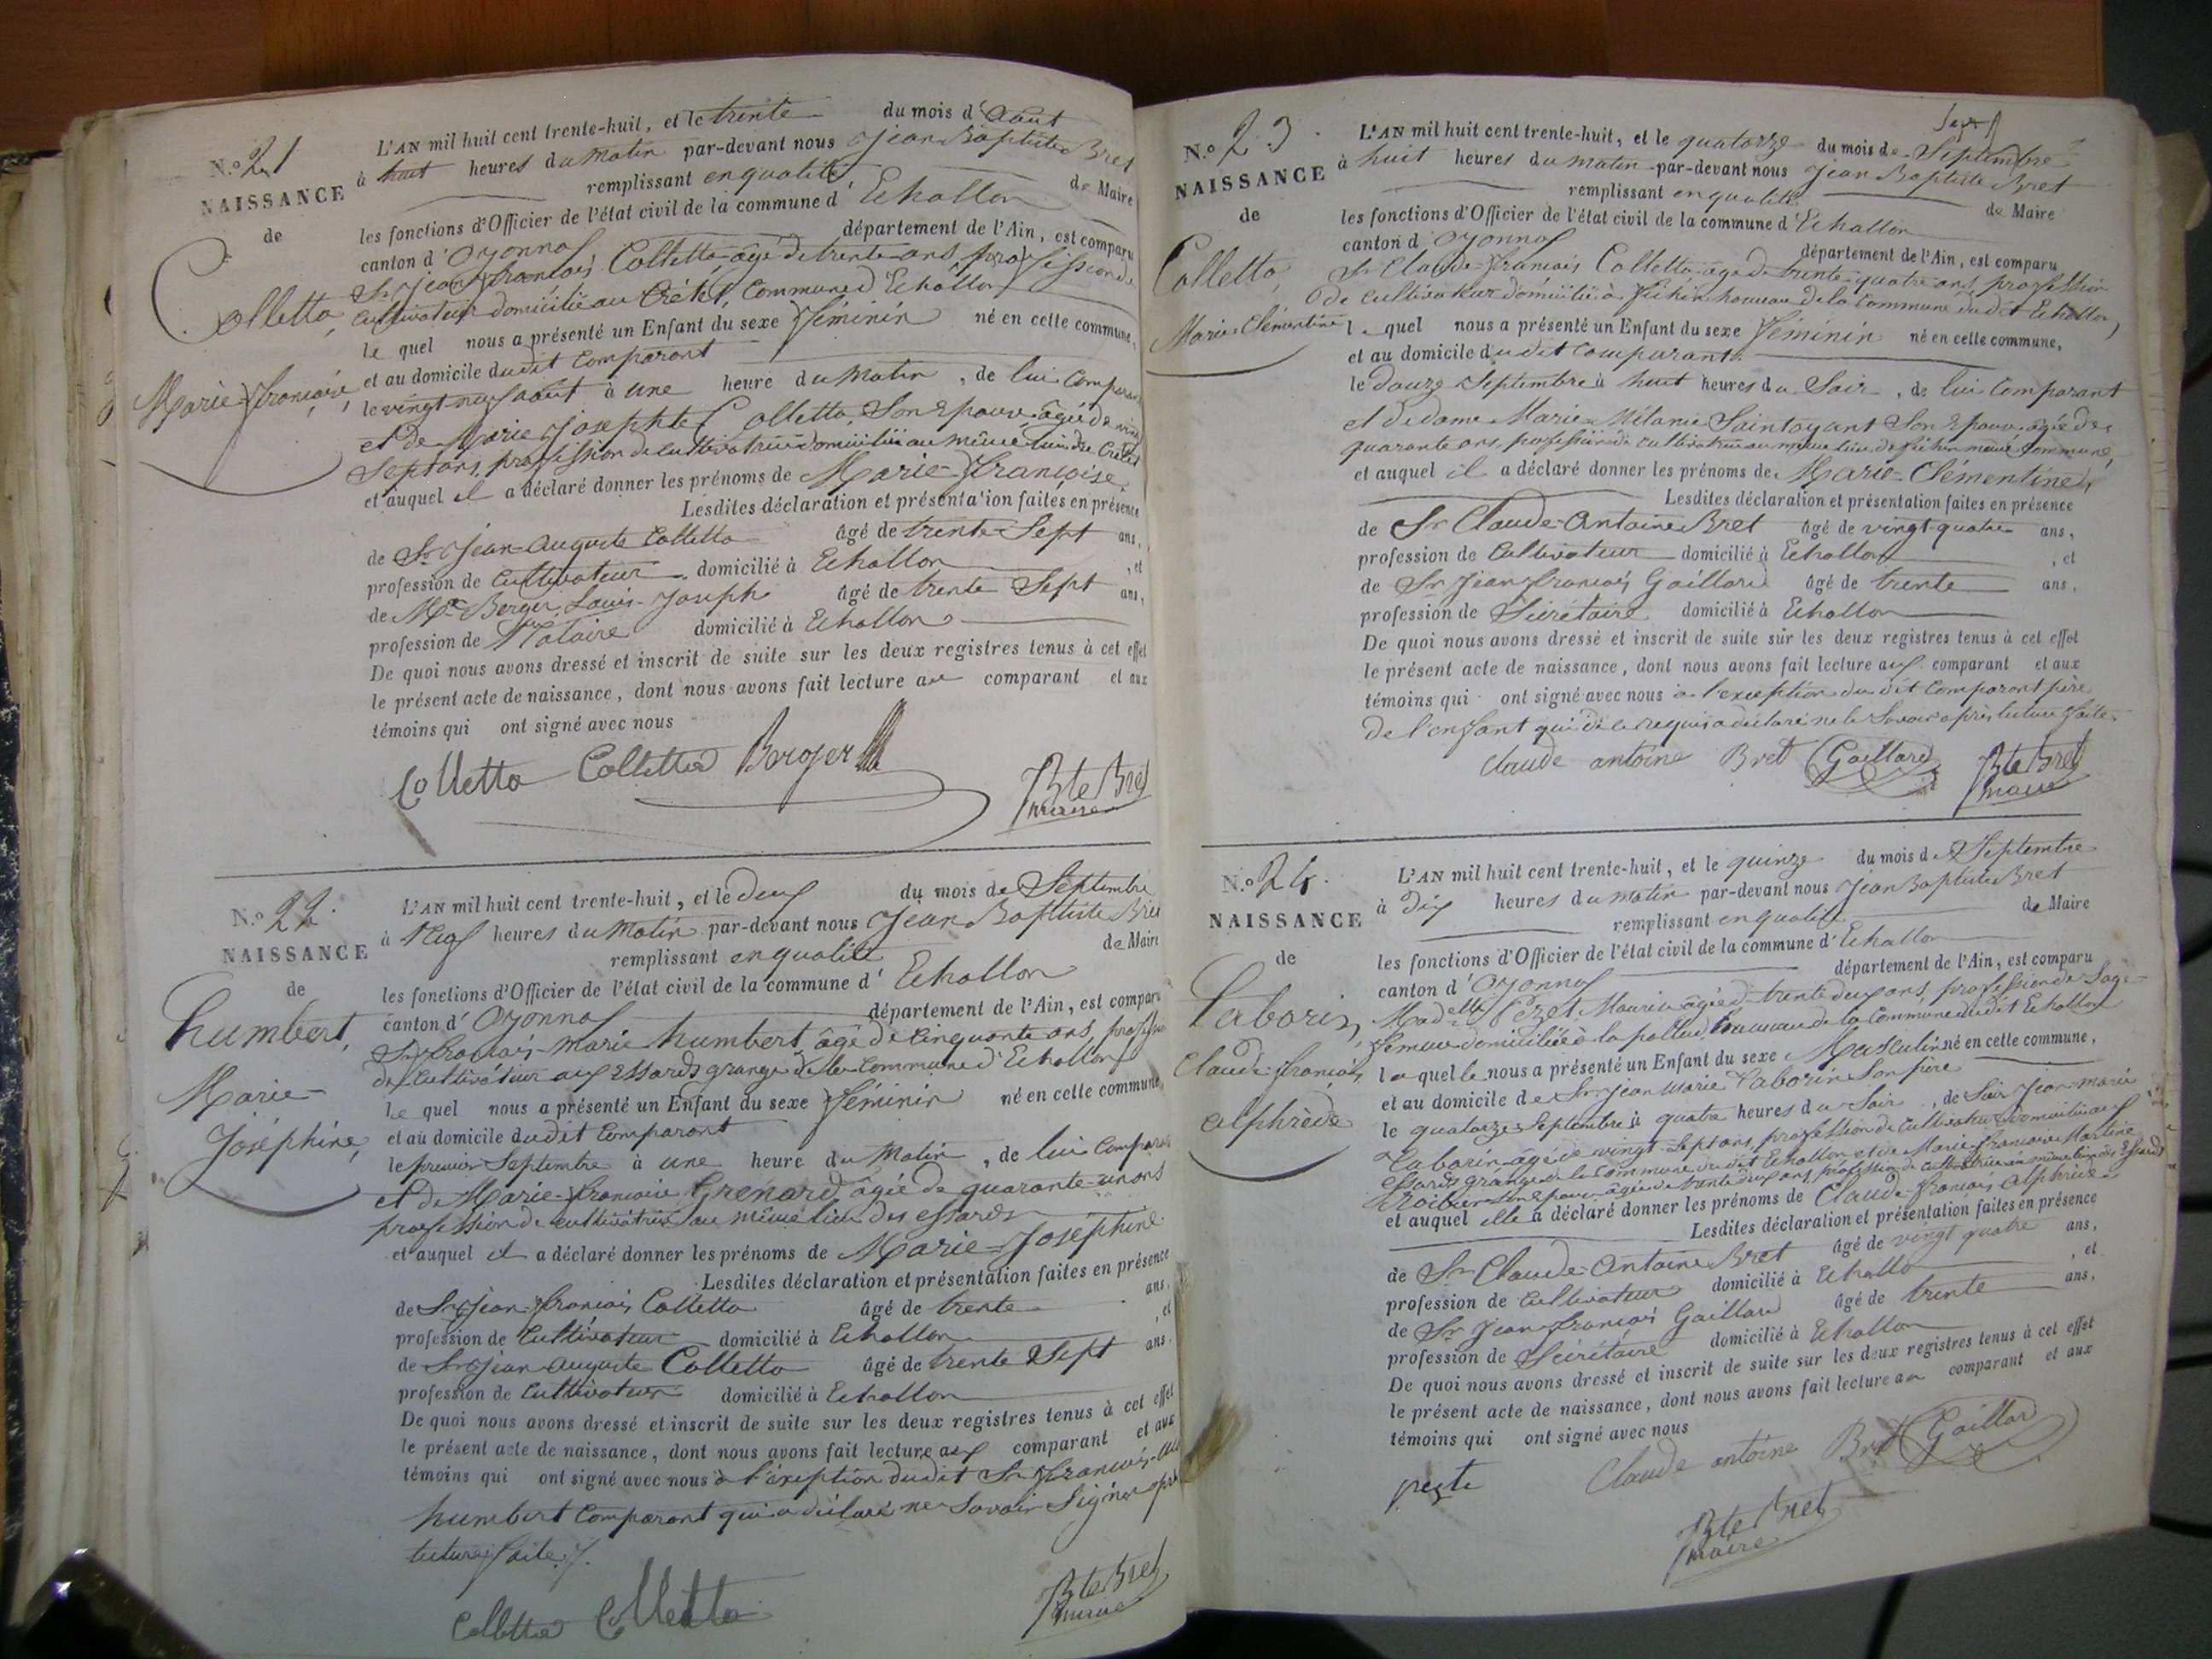 N.º 21
NAISSANCE
de
Colletta,
Marie Françoise,
L'AN mil huit cent trente-huit, et le trente du mois d'Aout
à huit heures du Matin par-devant nous Jean Baptiste Bret
remplissant en qualité de Maire
les fonctions d'Officier de l'état civil de la commune d'Echallon
canton d'Oyonnax département de l'Ain, est comparu
Sr Jean François Colletta âgé de trente ans profession de
cultivateur domicilié au Crétet, Commune d'Echallon
le quel nous a présenté un Enfant du sexe féminin né en cette commune,
et au domicile dudit Comparant
le vingt neuf aout à une heure du Matin, de lui Comparant
et de Marie Josephte Colletta, Son Epouse âgée de vingt
Sept ans, profession de cultivatrice domiciliée au même lieu du Crétet
et auquel il a déclaré donner les prénoms de Marie-Françoise.
Lesdites déclaration et présentation faites en présence
de Sr Jean-Auguste Colletta âgé de trente-Sept ans,
profession de Cultivateur domicilié à Echallon, et
de Me Berger, Louis-Joseph âgé de trente Sept ans,
profession de Notaire domicilié à Echallon
De quoi nous avons dressé et inscrit de suite sur les deux registres tenus à cet effet
le présent acte de naissance, dont nous avons fait lecture au comparant et aux
témoins qui ont signé avec nous
Colletta Colletta Berger
Bte Bret
maire
N.º 22.
NAISSANCE
de
humbert,
Marie-
Joséphine,
L'AN mil huit cent trente-huit, et le deux du mois de Septembre
à Neuf heures du Matin par-devant nous Jean Baptiste Bret
remplissant en qualité de Maire
les fonctions d'Officier de l'état civil de la commune d'Echallon
canton d'Oyonnax département de l'Ain, est comparu
Sr françois-marie humbert âgé de Cinquante ans, profession
de Cultivateur aux Essards grange de la Commune d'Echallon
le quel nous a présenté un Enfant du sexe féminin né en cette commune,
et au domicile dudit Comparant
le premier Septembre à une heure du Matin, de lui Comparant
et de Marie-françoise Grenard, âgée de quarante-un ans
profession de cultivatrice au même lieu des essards
et auquel il a déclaré donner les prénoms de Marie-Joséphine
Lesdites déclaration et présentation faites en présence
de Sr Jean-françois Colletta âgé de trente ans,
profession de Cultivateur domicilié à Echallon, et
de Sr Jean Auguste Colletta âgé de trente Sept ans
profession de Cultivateur domicilié à Echallon
De quoi nous avons dressé et inscrit de suite sur les deux registres tenus à cet effet
le présent acte de naissance, dont nous avons fait lecture aux comparant et aux
témoins qui ont signé avec nous à l'exeption dudit Sr François-
humbert Comparant qui a déclaré ne Savoir Signer
lecture faite.
Colletta Colletta
Bte Bret
maire
N.º 23.
NAISSANCE
de
Colletta,
Marie Clémentine
L'AN mil huit cent trente-huit, et le quatorze du mois de Septembre
à huit heures du matin par-devant nous Jean Baptiste Bret
remplissant en qualité de Maire
les fonctions d'Officier de l'état civil de la commune d'Echallon
canton d'Oyonnax département de l'Ain, est comparu
Sr Claude-françois Colletta âgé de trente quatre ans, profession
de cultivateur domicilié à hameau de la Commune du dit Echallon,
le quel nous a présenté un Enfant du sexe féminin né en cette commune,
et au domicile dudit Comparant.
le douze Septembre à huit heures du Soir, de lui Comparant
et de dame Marie-Mélanie Saintoyant Son Epouse âgée de
quarante ans, profession de cultivatrice au même lieu de même Commune,
et auquel il a déclaré donner les prénoms de Marie-Clémentine,
Lesdites déclaration et présentation faites en présence
de Sr Claude-Antoine Bret âgé de vingt-quatre ans,
profession de Cultivateur domicilié à Echallon, et
de Sr Jean françois Gaillard âgé de trente ans,
profession de Sécrétaire domicilié à Echallon
De quoi nous avons dressé et inscrit de suite sur les deux registres tenus à cet effet
le présent acte de naissance, dont nous avons fait lecture aux comparant et aux
témoins qui ont signé avec nous à l'exception du dit Comparant père
de l'enfant qui de ce requis a déclaré ne le Savoir après lecture faite.
Claude antoine Bret Gaillard
Bte Bret
maire
N.º 24.
NAISSANCE
de
Taborin,
Claude françois
alphrède
L'AN mil huit cent trente-huit, et le quinze du mois de Septembre
à dix heures du matin par-devant nous Jean Baptiste Bret
remplissant en qualité de Maire
les fonctions d'Officier de l'état civil de la commune d'Echallon
canton d'Oyonnax département de l'Ain, est comparu
Madelle Pezet, Maurice âgée de trente deux ans, profession de Sage-
femme domiciliée à la pallud, hameau de la Commune dudit Echallon
laquelle nous a présenté un Enfant du sexe Masculin né en cette commune,
et au domicile de Sr Jean Marie Taborin Son père
le quatorze Septembre à quatre heures du Soir, de Jean marie
Taborin âgé de vingt-Sept ans, profession de Cultivateur domicilié aux
essards grange de la Commune du dit Echallon et de Marie françoise Martine
Son Epouse âgée de trente deux ans, profession de cultivatrice au même lieu des Essards
et auquel elle a déclaré donner les prénoms de Claude-françois alphrède
Lesdites déclaration et présentation faites en présence
de Sr Claude-Antoine Bret âgé de vingt quatre ans,
profession de Cultivateur domicilié à Echallon, et
de Sr Jean françois Gaillard âgé de trente ans,
profession de Sécrétaire domicilié à Echallon
De quoi nous avons dressé et inscrit de suite sur les deux registres tenus à cet effet
le présent acte de naissance, dont nous avons fait lecture au comparant et aux
témoins qui ont signé avec nous
Claude antoine Bret Gaillard
Bte Bret
maire